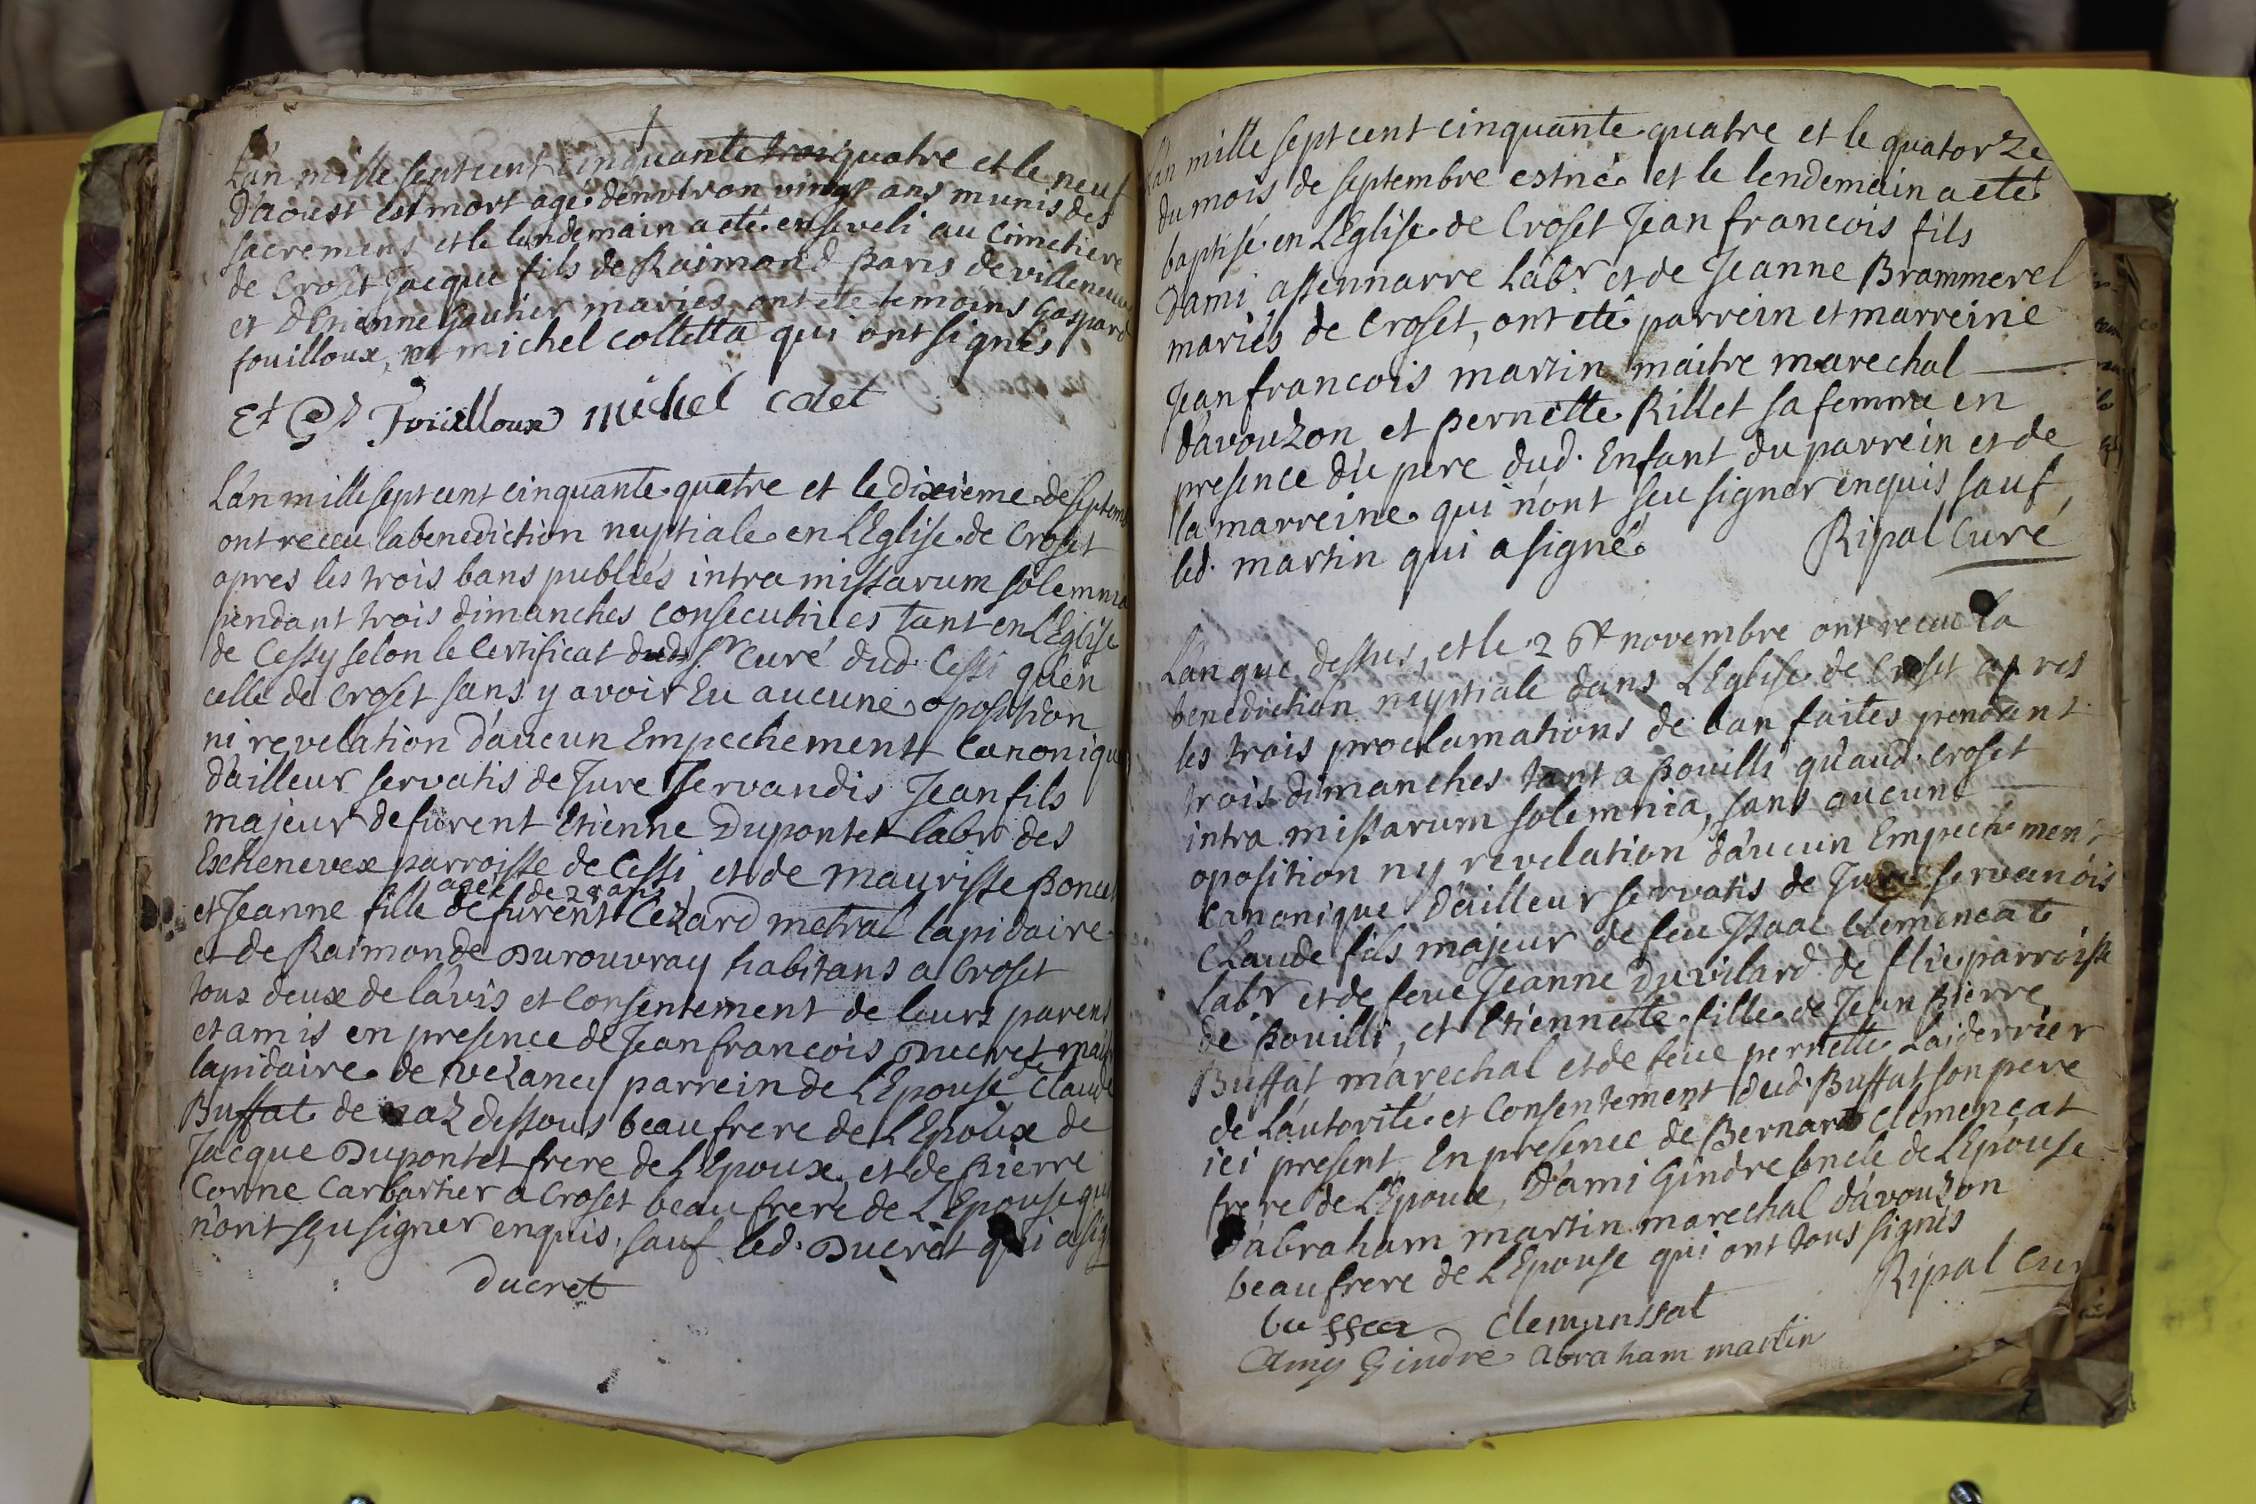 L'an mille sept cent cinquante trois quatre et le neuf
d'aoust est mort agé d'environ vingt ans munis des
sacremens et le lendemain a eté enseveli au Cimetiere
de Croset Jacque fils de Raimond Paris de villeneuve
et d'Etienne Gautier mariés, ont eté temoins Gaspard
fouilloux, et michel Colletta qui ont signés
Et Fouilloux michel Colet
L'an mille sept cent cinquante quatre et le dixieme de septem
ont receu la benediction nuptiale en L'Eglise de Croset
apres les trois bans publiés intra missarum solemnia
pendant trois dimanches Consecutives tant en L'Eglise
de Cessy selon le Certificat dud. Sr Curé dud. Cessi qu'en
celle de Croset sans y avoir Eu aucune oposition
ni revelation d'aucun Empechement Canonique
d'ailleur servatis de Jure servandis Jean fils
majeur de furent Etienne Dupontet labr des
Echenevex parroisse de Cessi, et de maurisse Poncet
agée de 28 ans
et Jeanne fille de furent Cezard metral lapidaire
et de Raimonde Durouvray habitans a Croset
tous deux de l'avis et Consentement de leurs parens
et amis en presence de Jean francois Ducret maitre
lapidaire de vezancy parrein de L'Epouse de Claude
Buffat de naz dessous beaufrere de L'Epoux de
Jacque Dupontet frere de L'Epoux, et de Pierre
Corne Carbartier a Croset beaufrere de L'Epouse qui
n'ont sçu signer enquis, sauf led. Ducret qui a sig
ducret
L'an mille sept cent cinquante quatre et le quatorze
du mois de septembre est né et le lendemain a eté
baptisé en L'Eglise de Croset Jean francois fils
d'ami assennarre labr. et de Jeanne Brammerel
mariés de Croset, ont eté parrein et marreine
Jean francois martin maitre marechal
d'avouzon et Pernette Rillet sa femme en
presence du pere dud. Enfant du parrein et de
la marreine qui n'ont seu signer enquis sauf
led. martin qui a signé. Ripal Curé
L'an que dessus, et le 26e novembre ont receu la
benediction nuptiale dans L'Eglise de Croset apres
les trois proclamations de ban faites pendant
trois dimanches tant a Pouilli qu'aud. Croset
intra missarum solemnia, sans aucune
oposition ny revelation d'aucun Empechement
Canonique d'ailleur servatis de Jure servandis
Claude fils majeur de feu Isaac Clemencat
labr et de feue Jeanne Duvilard de flie parroisse
de Pouilli, et Etiennette fille de Jean Pierre
Buffat marechal et de feue pernette Laiderrier
de L'autorité et Consentement dud. Buffat son pere
ici present, En presence de Bernard Clemencat
frere de L'Epoux, d'ami Gindre oncle de L'Epouse
d'abraham martin marechal d'avouzon
beaufrere de L'Epouse qui ont tous signés
Ripal Cur
bussa Clemanssat
Amy Gindre abraham martin